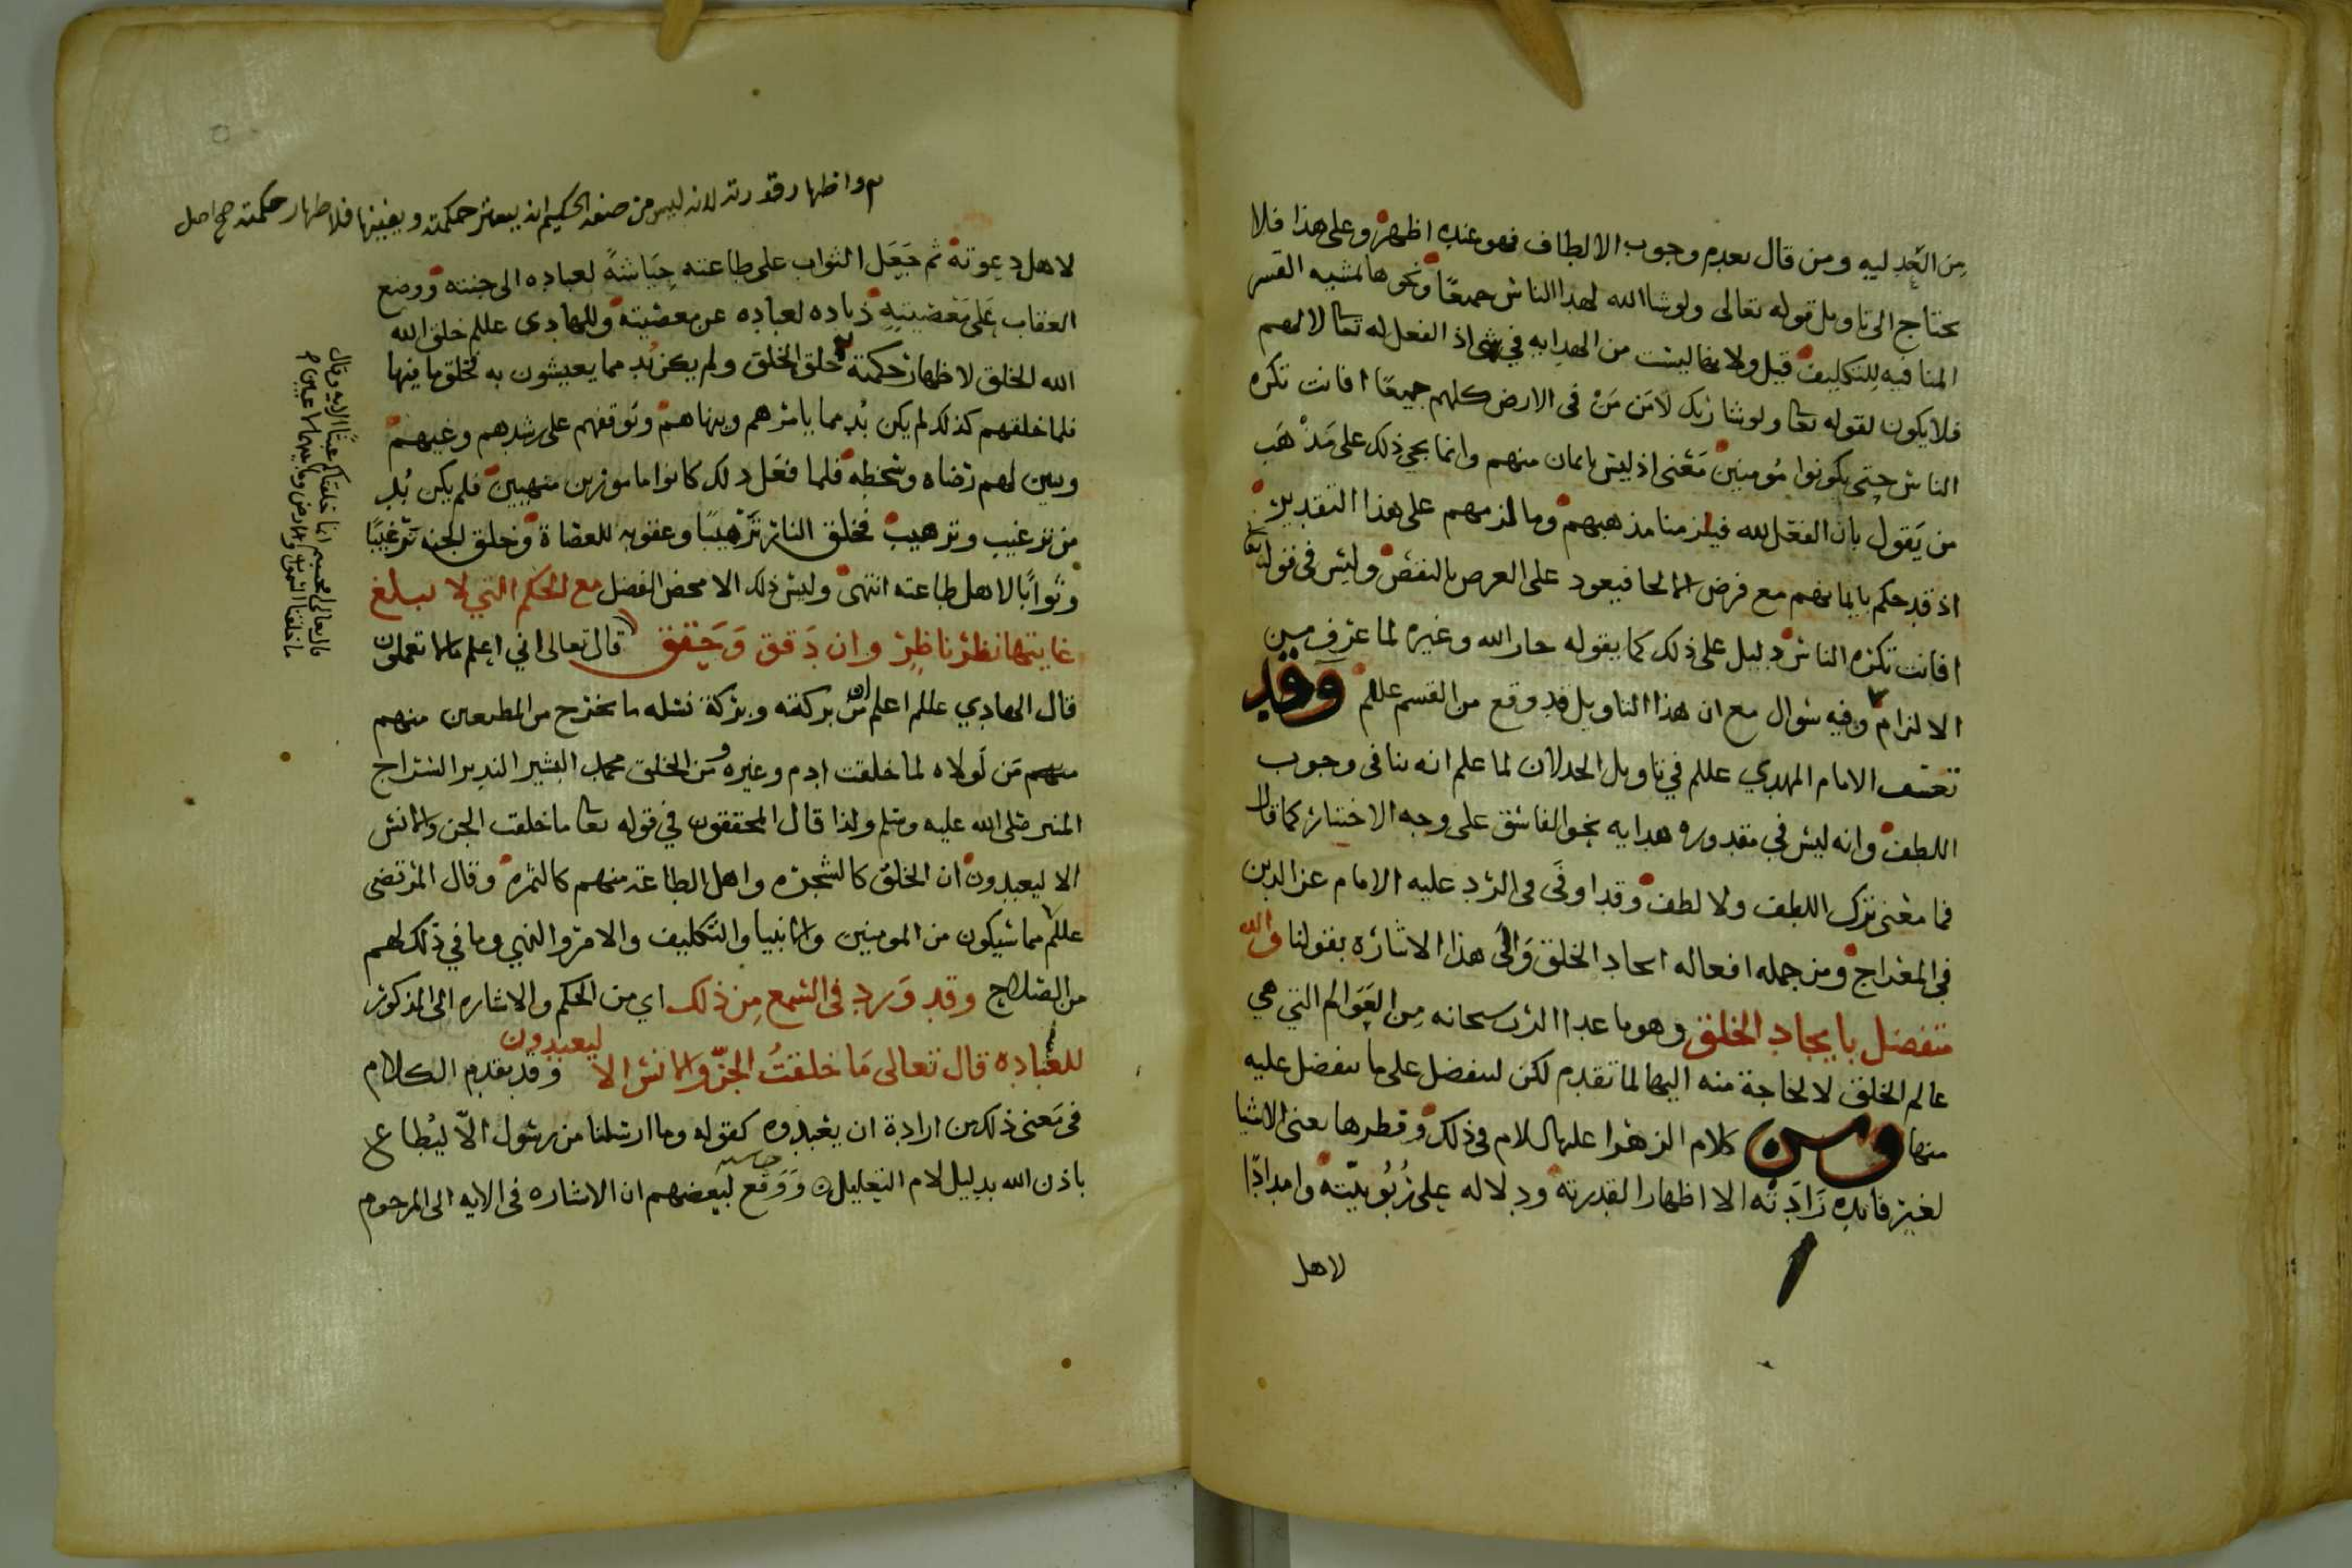 من العدليه ومن قال بعدم وجوب الالطاف فهو عنده اظهر وعلى هذا فلا
يحتاج الى تاويل قوله تعالى ولو شا الله لهدا الناس جميعًا ونحوها لمشيه القسر
المنافيه للتكليف قيل ولا يها ليست من الهدايه في شي اذ الفعل له تعا لا لهم
فلا يكون لقوله تعا ولو شا ربك لامن من في الارض كلهم جميعًا افانت تكره
الناس حتى يكونوا مومنين معنى اذ ليس بايمان منهم وانما يجي ذلك على مذهب
من يقول بان الفعل لله فيلزمنا مذهبهم وما الزمهم على هذا التقدير
اذ قد حكم بايمانهم مع فرض الالجا فيعود على العرض بالنقض وليس في قوله تعا
افانت تكره الناس دليل على ذلك كما يقوله جار الله وغيره لما عرف من
الالزام وفيه سوال مع ان هذا التاويل قد وقع من القسم عللم وقد
تعسف الامام المهدي عللم في تاويل الخذلان لما علم انه ينافي وجوب
اللطف وانه ليس في مقدوره هدايه نحو الفاسق على وجه الاختيار كما قال
فما معنى ترك اللطف ولا لطف وقد اوفى في الرد عليه الامام عز الدين
في المعراج ومن جمله افعاله ايجاد الخلق والى هذا الاشاره بقولنا والله
متفضل بايجاد الخلق وهو ما عدا الرب سبحانه من العوالم التي هي
عالم الخلق لا لحاجة منه اليها لما تقدم لكن ليتفضل على ما يتفضل عليه
منها ومن كلام الزهرا عليها السلام في ذلك وفطرها يعني الاشيا
لغير فايده زادته الا اظهارا لقدرته ودلاله على ربوبيته وامدادًا
لاهل
واظهار قدرته لانه ليس من صنعه الحكيم ان يستر حكمته ويغيبها فلاظهار حكمته صح اصل
لاهل دعوته ثم جعل الثواب على طاعته حياشةً لعباده الى جنته ووضع
العقاب على معصيته ذياده لعباده عن معصيته وللهادي عللم خلق الله
الله الخلق لاظهار حكمته خلق الخلق ولم يكن بد مما يعيشون به فخلق ما فيها
فلما خلقهم كذلك لم يكن بد مما يامرهم وينهاهم وتوقفهم على رشدهم وغيهم
وتبين لهم رضاه وسخطه فلما فعل ذلك كانوا مامورين منهيين فلم يكن بد
من ترغيب وترهيب فخلق النار ترهيبًا وعقوبه للعصاة وخلق الجنه ترغيبًا
وثوابًا لاهل طاعته انتهى وليس ذلك الا محض الفضل مع الحكم التي لا يبلغ
غايتها نظر ناظر وان دقق وحقق قال تعالى اني اعلم ما لا تعلمون
قال الهادي عللم اعلم من بركته وبركة نسله ما يخرج من المطيعين منهم
منهم من لولاه لما خلقت ادم وغيره من الخلق محمد البشير النذير السراج
المنير صلى الله عليه وسلم ولذا قال المحققون في قوله تعا ما خلقت الجن والانس
الا ليعبدون ان الخلق كالشجره واهل الطاعة منهم كالثمره وقال المرتضى
عللم مما سيكون من المومنين والانبيا والتكليف والامر والنهي وما في ذلك لهم
من الصلاح وقد ورد في السمع من ذلك اي من الحكم والاشاره الى المذكور
للعباده قال تعالى ما خلقت الجن والانس الا ليعبدون وقد تقدم الكلام
في معنى ذلك من ارادة ان يعبدوه كقوله وما ارسلنا من رسول الا ليطاع
باذن الله بدليل لام التعليل ووقع لبعضهم ان الاشاره في الايه الى المرحوم
قال تعالى افحسبتم انما خلقناكم عبثًا الايه وقال
ما خلقنا السموات والارض وما بينهما لاعبين